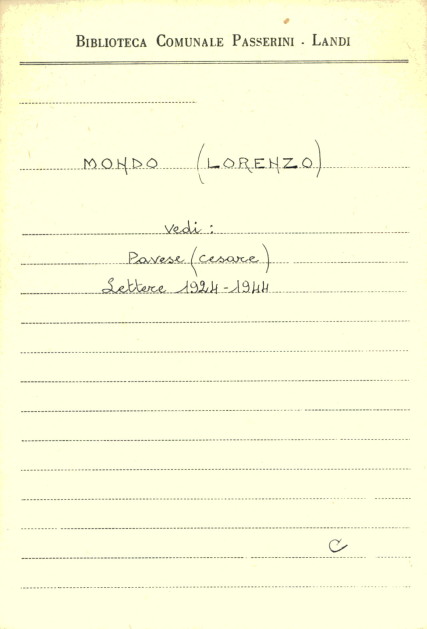 BIBLIOTECA COMUNALE PASSERINI - LANDI
MONDO (LORENZO)
vedi :
Pavese (Cesare)
Lettere 1924-1944
C